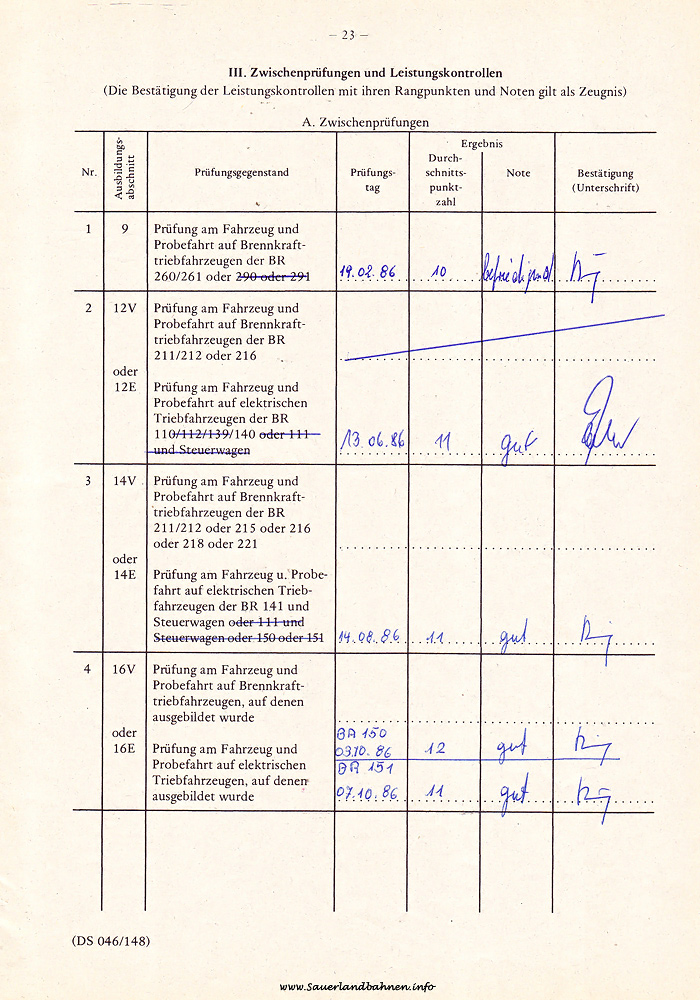 – 23 –
III. Zwischenprüfungen und Leistungskontrollen
(Die Bestätigung der Leistungskontrollen mit ihren Rangpunkten und Noten gilt als Zeugnis)
A. Zwischenprüfungen
Nr.
Ausbildungs-
abschnitt
Prüfungsgegenstand
Prüfungs-
tag
Ergebnis
Durch-
schnitts-
punkt-
zahl
Note
Bestätigung
(Unterschrift)
1 9 Prüfung am Fahrzeug und
Probefahrt auf Brennkraft-
triebfahrzeugen der BR
260/261 oder 290 oder 291 19.02.86 10 befriedigend
2 12V Prüfung am Fahrzeug und
Probefahrt auf Brennkraft-
triebfahrzeugen der BR
211/212 oder 216
oder
12E Prüfung am Fahrzeug und
Probefahrt auf elektrischen
Triebfahrzeugen der BR
110/112/139/140 oder 111 13.06.86 11 gut
und Steuerwagen
3 14V Prüfung am Fahrzeug und
Probefahrt auf Brennkraft-
triebfahrzeugen der BR
211/212 oder 215 oder 216
oder 218 oder 221
oder
14E Prüfung am Fahrzeug u. Probe-
fahrt auf elektrischen Trieb-
fahrzeugen der BR 141 und
Steuerwagen oder 111 und
Steuerwagen oder 150 oder 151 14.08.86 11 gut
4 16V Prüfung am Fahrzeug und
Probefahrt auf Brennkraft-
triebfahrzeugen, auf denen
ausgebildet wurde
oder BR 150
16E Prüfung am Fahrzeug und 03.10.86 12 gut
Probefahrt auf elektrischen BR 151
Triebfahrzeugen, auf denen
ausgebildet wurde 07.10.86 11 gut
(DS 046/148)
www.Sauerlandbahnen.info